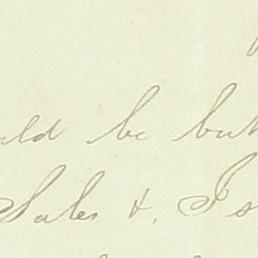 ld be but
Sales &. Is